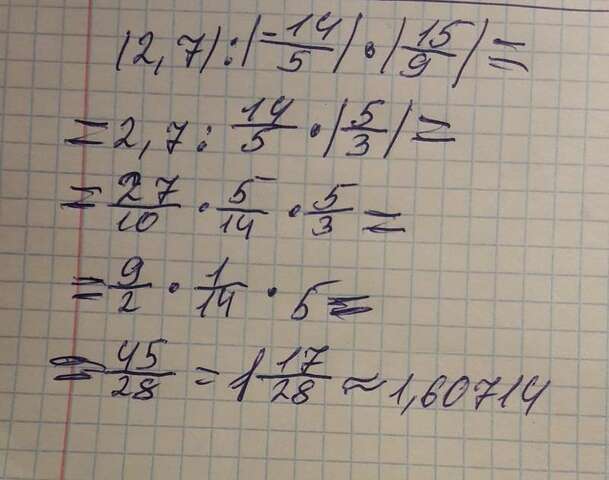 |2,7|:|-14/5|·|15/9|=
=2,7:14/5·|5/3|=
=27/10·5/14·5/3=
=9/2·1/14·5=
=45/28=1 17/28≈1,60714